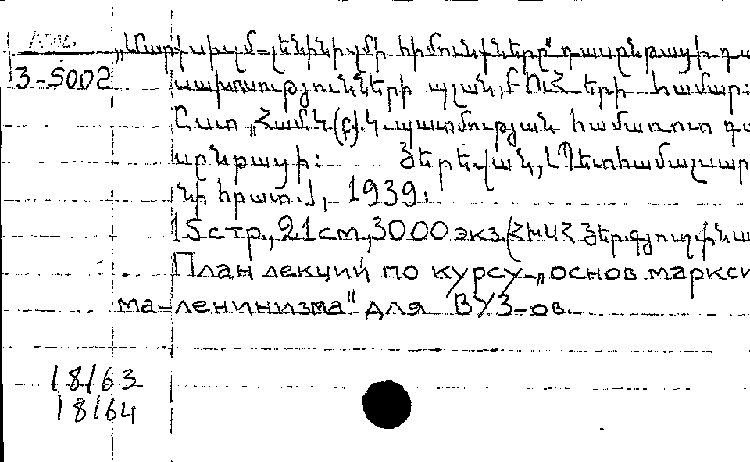 „Մարքսիզմ-լենինիզմի հիմունքները" դասընթացի դա
3-5002
սախոսությունների պլան, ԲՈւՀ-երի համար:
Ըստ „Համկ(բ)կ պատմության համառոտ դա
սընթացի: Յերեվան, Պետհամալսար
նի հրատ., 1939.
15 стр., 21 см, 3000 экз. (ՀԽՍՀ
План лекций по курсу „основ марксиз
ма-ленинизма" для ВУЗ-ов.
18163
18164